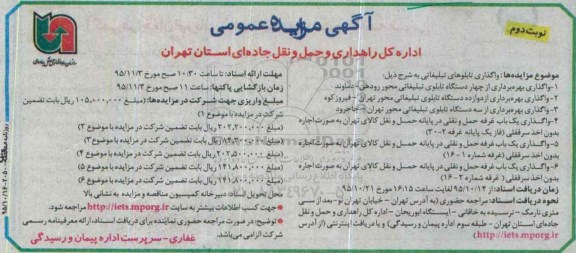 نوبت دوم
آگهی مزایده عمومی
اداره کل راهداری و حمل و نقل جاده‌ای استان تهران
موضوع مزایده‌ها: واگذاری تابلوهای تبلیغاتی به شرح ذیل:
۱-واگذاری بهره‌برداری از چهار دستگاه تابلوی تبلیغاتی محور رودهن- دماوند
۲-واگذاری بهره‌برداری از دوازده دستگاه تابلوی تبلیغاتی محور تهران - فیروزکوه
۳-واگذاری بهره‌برداری از سه دستگاه تابلوی تبلیغاتی محور تهران - جاجرود
۴-واگذاری یک باب غرفه حمل و نقلی در پایانه حمل و نقل کالای تهران به صورت اجاره
بدون اخذ سرقفلی (فاز یک پایانه غرفه ۲-۳۰۰)
۵-واگذاری یک باب غرفه حمل و نقلی در پایانه حمل و نقل کالای تهران به صورت اجاره
بدون اخذ سرقفلی (غرفه شماره ۱-۱۶)
۶-واگذاری یک باب غرفه حمل و نقلی در پایانه حمل و نقل کالای تهران به صورت اجاره
بدون اخذ سرقفلی ( غرفه شماره ۲-۱۶)
زمان دریافت اسناد: از ۹۵/۱۰/۱۴ لغایت ساعت ۱۶:۱۵ مورخ ۹۵/۱۰/۲۱
نحوه دریافت اسناد: مراجعه حضوری (به آدرس تهران - خیابان تهران نو-بعد از سی
متری نارمک - نرسیده به خاقانی - ایستگاه ابوریحان - اداره کل راهداری و حمل و نقل
جاده‌ای استان تهران - طبقه سوم اداره پیمان و رسیدگی) و یا دریافت اینترنتی (از آدرس
http://iets.mporg.ir)
مهلت ارائه اسناد: تا ساعت ۱۰:۳۰ صبح مورخ ۹۵/۱۱/۳
زمان بازگشایی پاکتها: ساعت ۱۱ صبح مورخ ۹۵/۱۱/۳
مبلغ واریزی جهت شرکت در مزایده‌ها: (مبلغ ۱۰۵,۰۰۰,۰۰۰ ریال بابت تضمین
شرکت در مزایده با موضوع ۱)
(مبلغ ۲۰۲,۲۰۰,۰۰۰ ریال بابت تضمین شرکت در مزایده با موضوع ۲)
ریال بابت تضمین شرکت در مزایده با موضوع ۳)
(مبلغ ۲۰۲,۵۰۰,۰۰۰ ریال بابت تضمین شرکت در مزایده با موضوع ۴)
(مبلغ ۱۴۱,۸۰۰,۰۰۰ ریال بابت تضمین شرکت در مزایده با موضوع ۵)
(مبلغ ۱۴۱,۸۰۰,۰۰۰ ریال بابت تضمین شرکت در مزایده با موضوع ۶)
محل تحویل اسناد: دبیرخانه کمیسیون مناقصه و مزایده به نشانی بالا
جهت کسب اطلاعات بیشتر به سایت http://iets.mporg.ir مراجعه شود.
توضیح: در صورت مراجعه حضوری نماینده برای دریافت اسناد، ارائه معرفینامه رسمی
شرکت الزامی می‌باشد.
غفاری - سرپرست اداره پیمان و رسیدگی